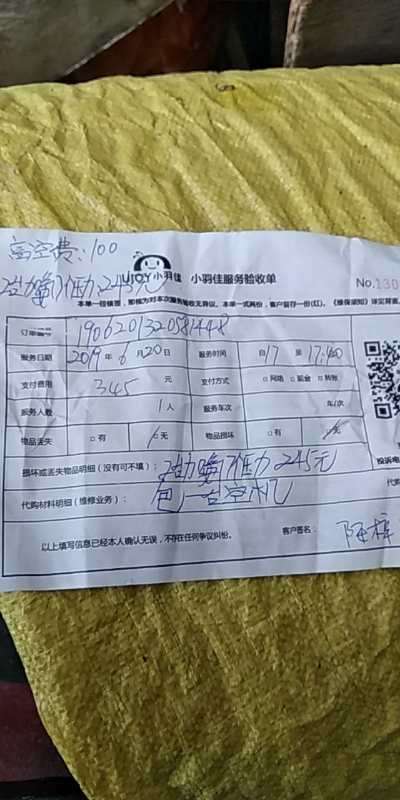 高空费：100
UJOY 小羽佳 小羽佳服务验收单 No.130
245元
本单一经销售，即视为对本次服务验收无异议。本单一式两份，客户留存一份(红)。《维保须知》详见背面。
订单编号 1906201320581448
服务日期 2019年6月20日 服务时间 自17 至17:40
支付费用 345 元 支付方式 □网络 □现金 □转账
服务人数 1人 服务车次 车/次
物品丢失 □有 □无 物品损坏 □有 □无
损坏或丢失物品明细（没有可不填）： 245元
代购材料明细（维修业务）： 包一台空机
投诉电
代购
以上填写信息已经本人确认无误，不存在任何争议纠纷。 客户签名：